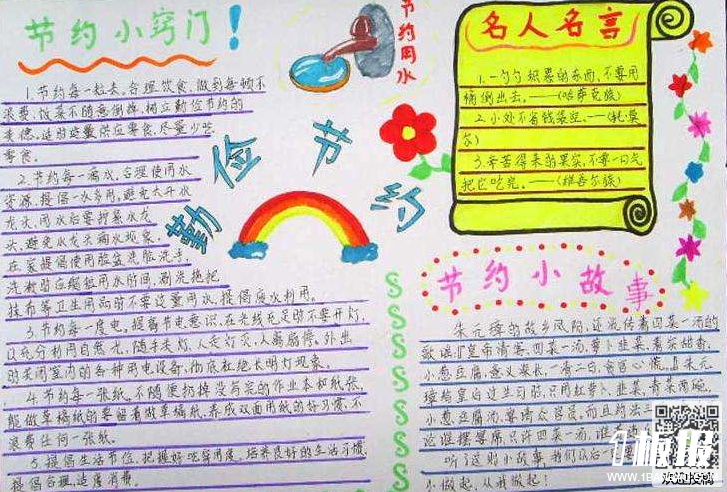 节约小窍门！
1.节约每一粒米。合理饮食,做到每顿不
浪费,饭菜不随意倒掉,树立勤俭节约的
美德。适时适量供应零食,尽量少吃
零食。
2.节约每一滴水。合理使用水
资源,提倡一水多用,避免大开水
龙头,用水后要拧紧水龙
头,避免水龙头滴水现象。
在家提倡使用脸盆洗脸洗手。
洗漱时应缩短用水时间,刷洗拖把、
抹布等卫生用品时不要过量用水,提倡废水利用。
3.节约每一度电。提高节电意识,在光线充足时不要开灯,
以充分利用自然光,随手关灯,人走灯灭,人离扇停。外出
时关闭室内的各种用电设备,彻底杜绝长明灯现象。
4.节约每一张纸。不随便扔掉没写完的作业本和纸张,
能做草稿纸的要留着做草稿纸,养成双面用纸的好习惯,不
浪费任何一张纸。
5.提倡生活节俭,把握好吃穿用度,培养良好的生活习惯,
提倡合理、适度消费。
节约用水
勤俭节约
名人名言
1.一勺勺积累的东西,不要用
桶倒出去。——(哈萨克族)
2.小处不省钱袋空。——(托·莫
尔)
3.辛苦得来的果实,不要一口气
把它吃完。——(维吾尔族)
节约小故事
朱元璋的故乡凤阳,还流传着四菜一汤的
歌谣:“皇帝请客,四菜一汤,萝卜韭菜,着实甜香;
小葱豆腐,意义深长,一青二白,贪官心慌。”朱元
璋给皇后过生日时,只用红萝卜、韭菜,青菜两碗,
小葱豆腐汤,宴请众官员。而且约法三
论谁摆宴席,只许四菜一汤,谁若违
听了这则小故事,我们以后
小做起,从我做起!
1板报
WWW.1BANBAO.COM